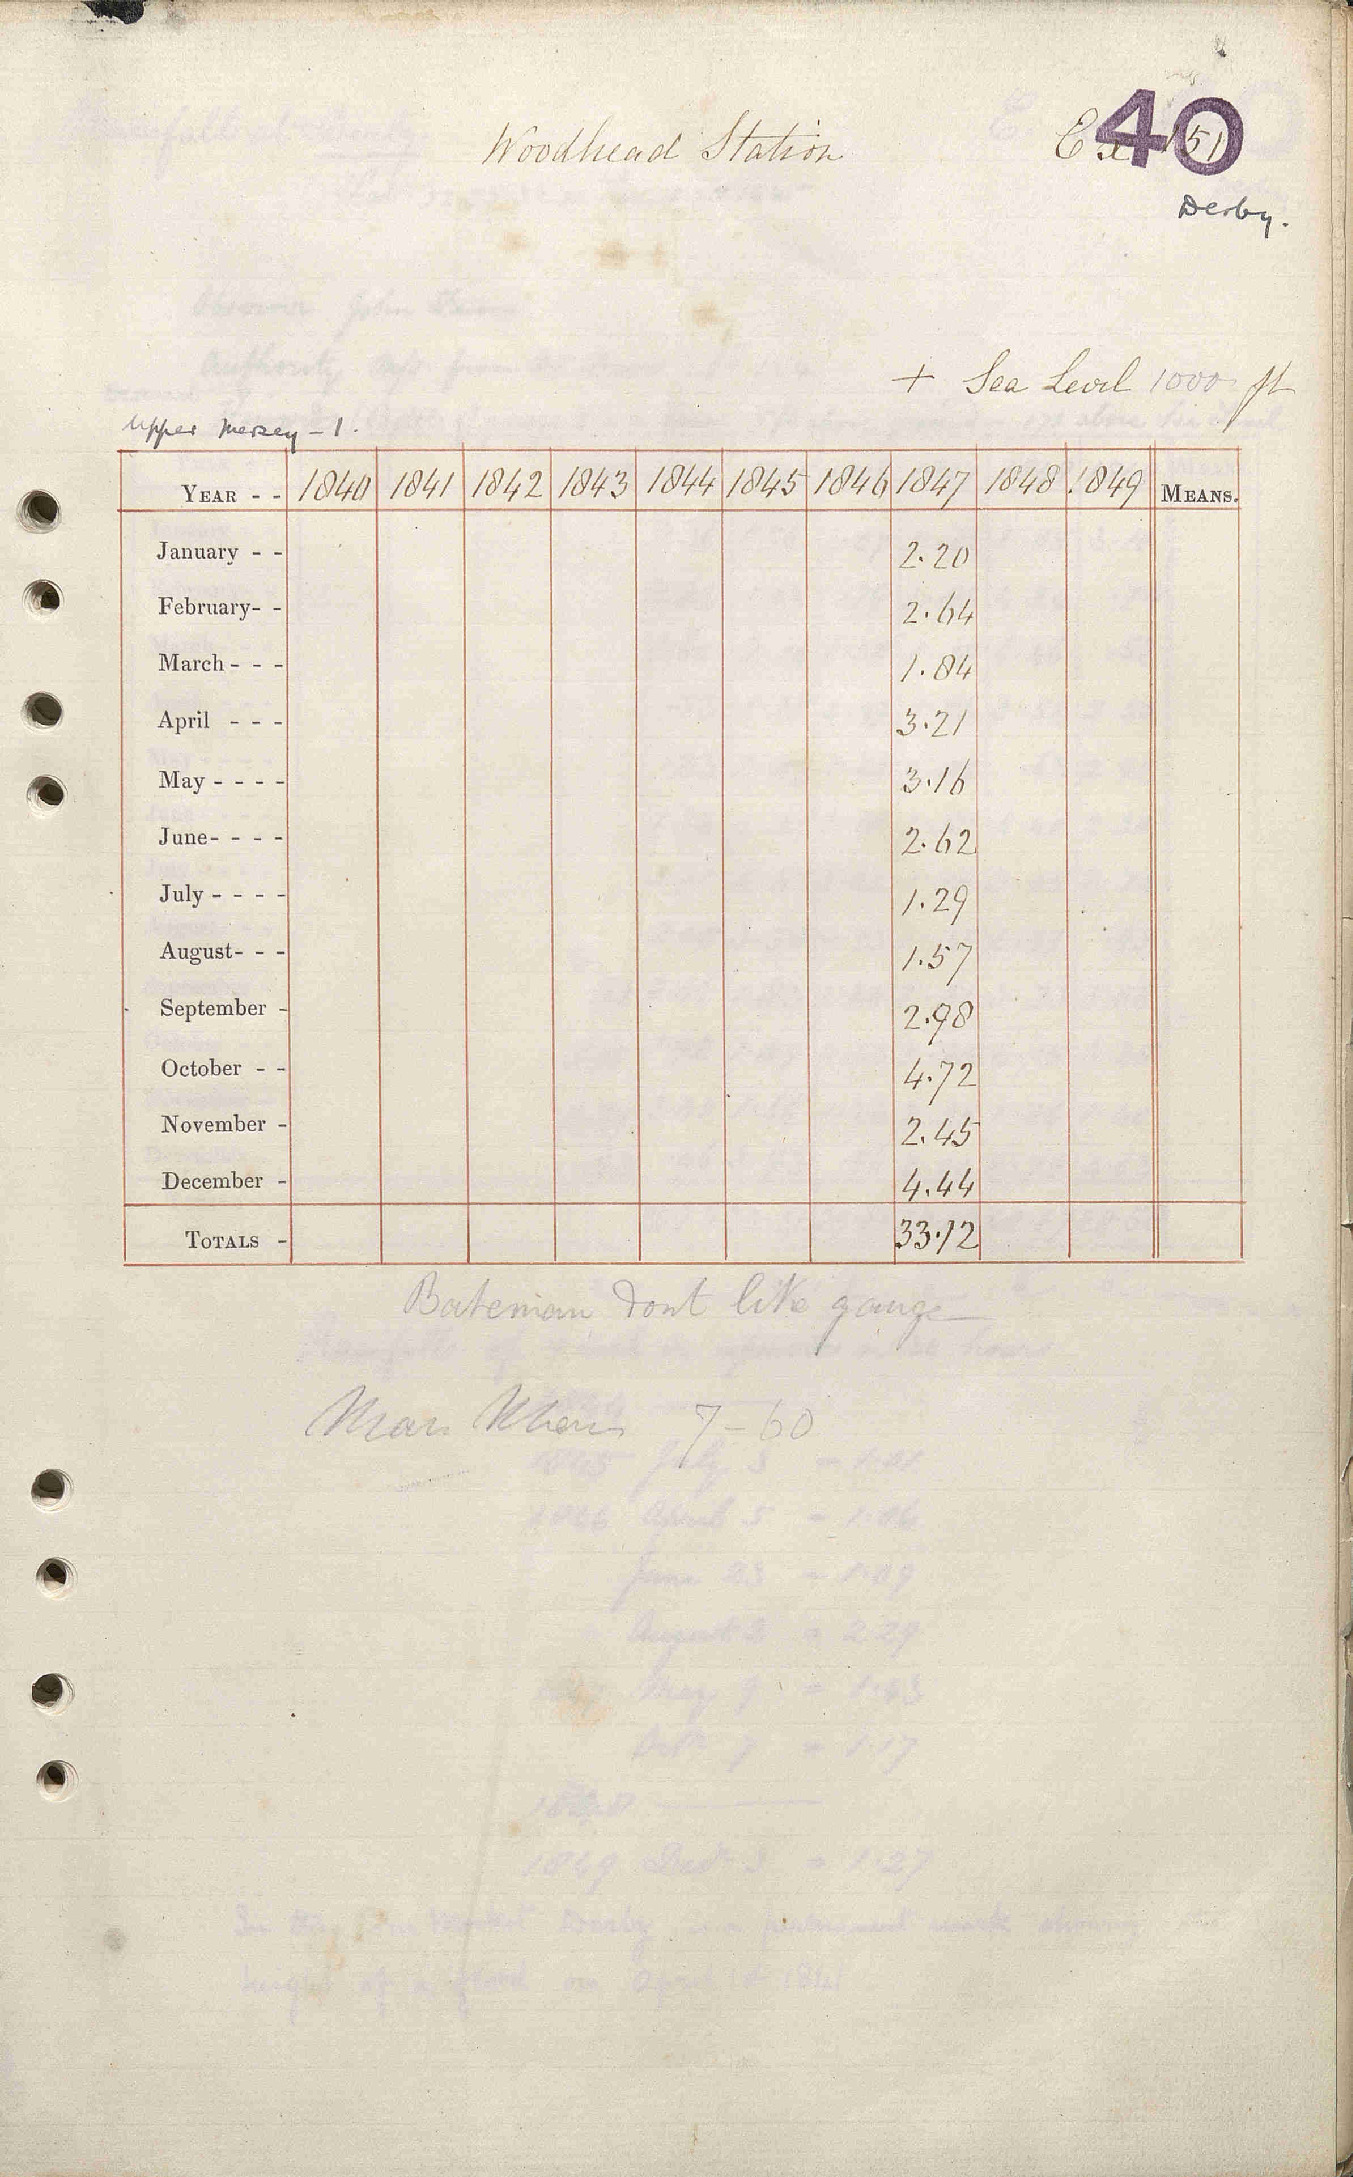 Woodhead Station
40
151
Derby.
+ Sea Level 1000 ft
Upper Mersey - 1.
YEAR - - 1840 1841 1842 1843 1844 1845 1846 1847 1848 1849 MEANS.
January - - 2.20
February- - 2.64
March - - - 1.84
April - - - 3.21
May - - - - 3.16
June- - - - 2.62
July - - - - 1.29
August- - - 1.57
September - 2.98
October - - 4.72
November - 2.45
December - 4.44
TOTALS - 33.12
Bateman dont like gauge
7-60